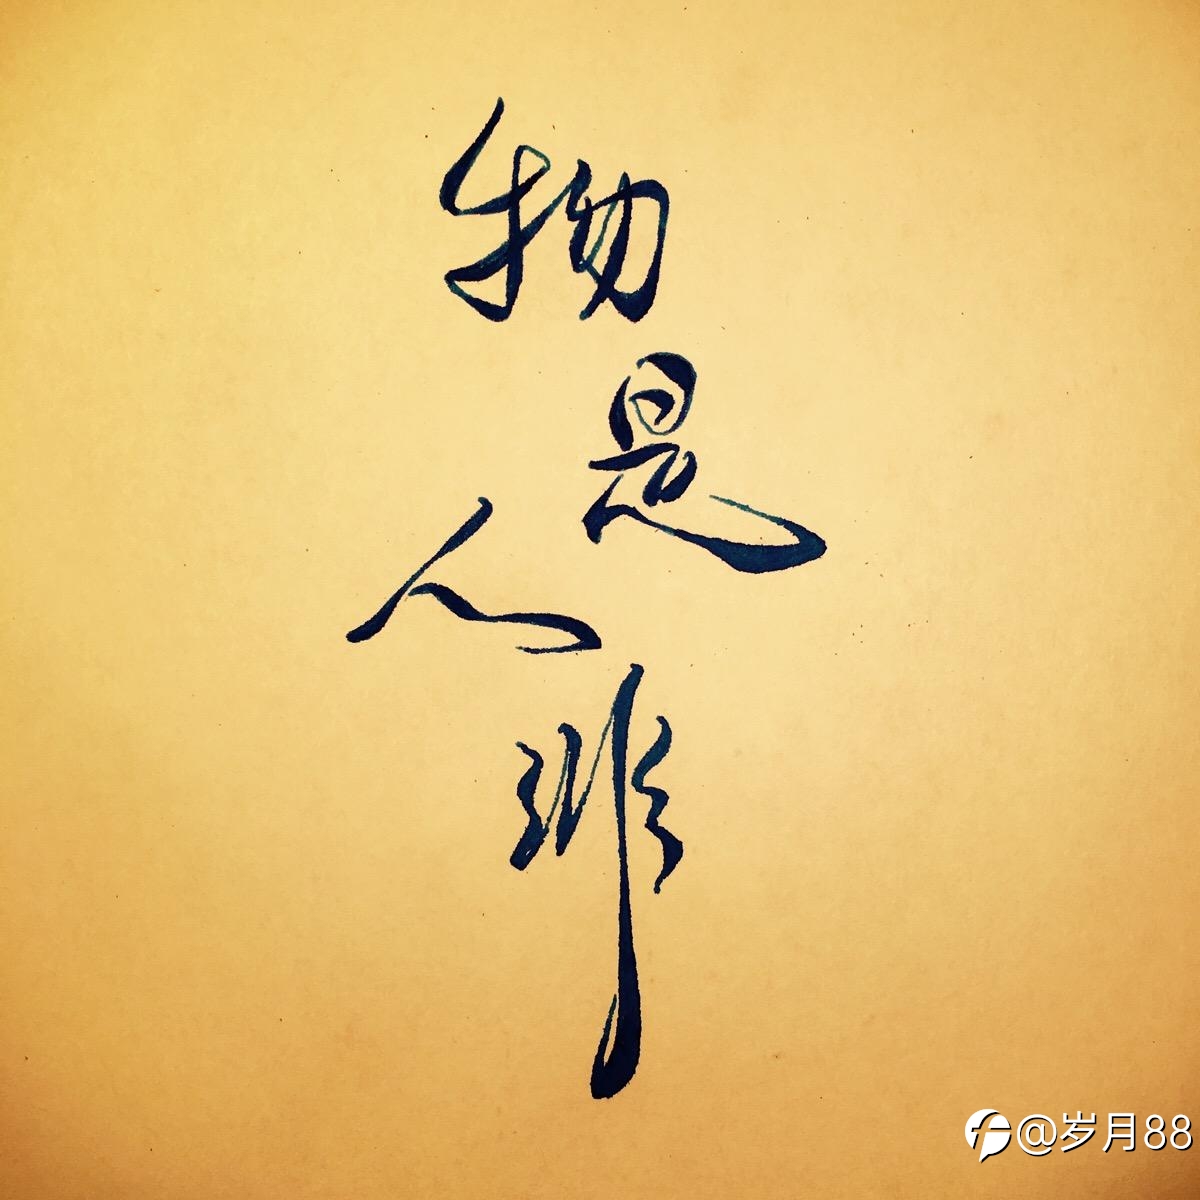 物是人非
@岁月88